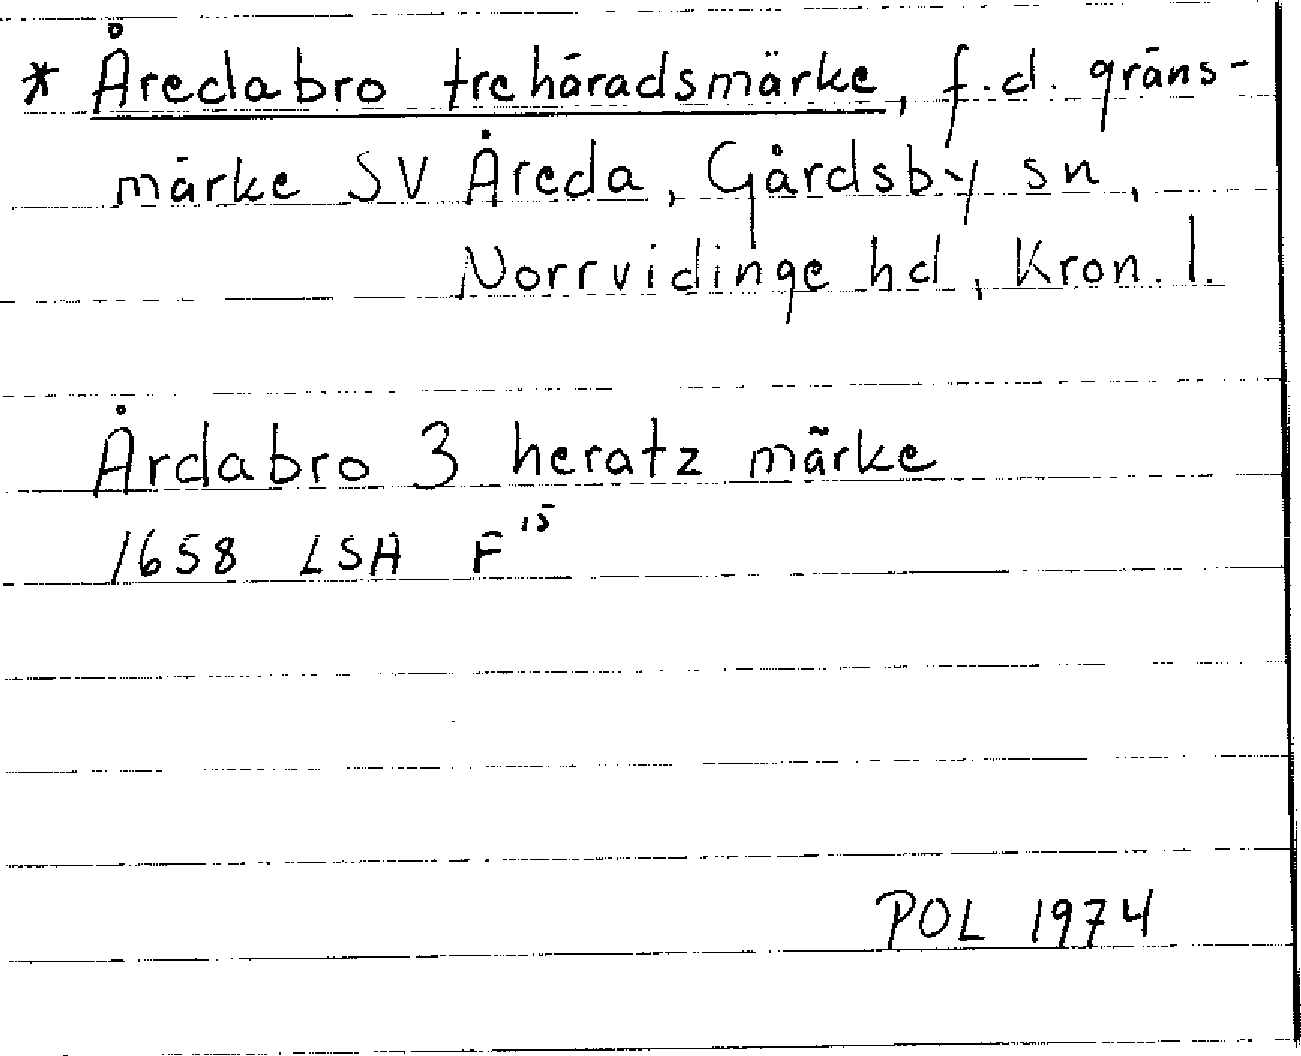 * Åredabro trehäradsmärke, f.d. gräns-
märke SV Åreda, Gårdsby sn,
Norrvidinge hd, Kron. l.
Årdabro 3 heratz märke
1658 LSA F¹⁵
POL 1974